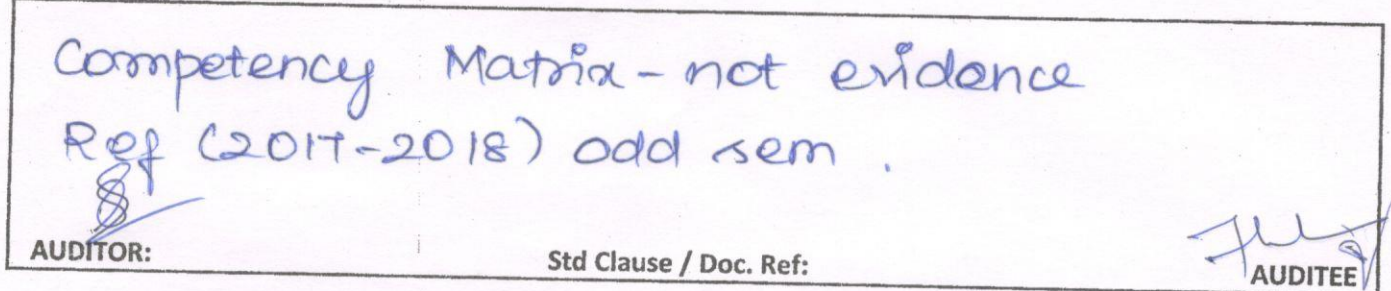 Competency Matrix - not evidence
Ref (2017-2018) odd sem.
AUDITOR: Std Clause / Doc. Ref: AUDITEE